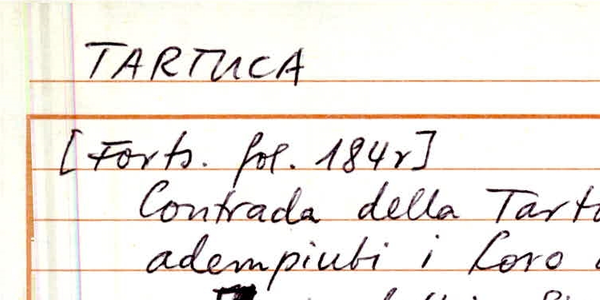 TARTUCA
[Forts. fol. 184r]
Contrada della
adempiuti i loro